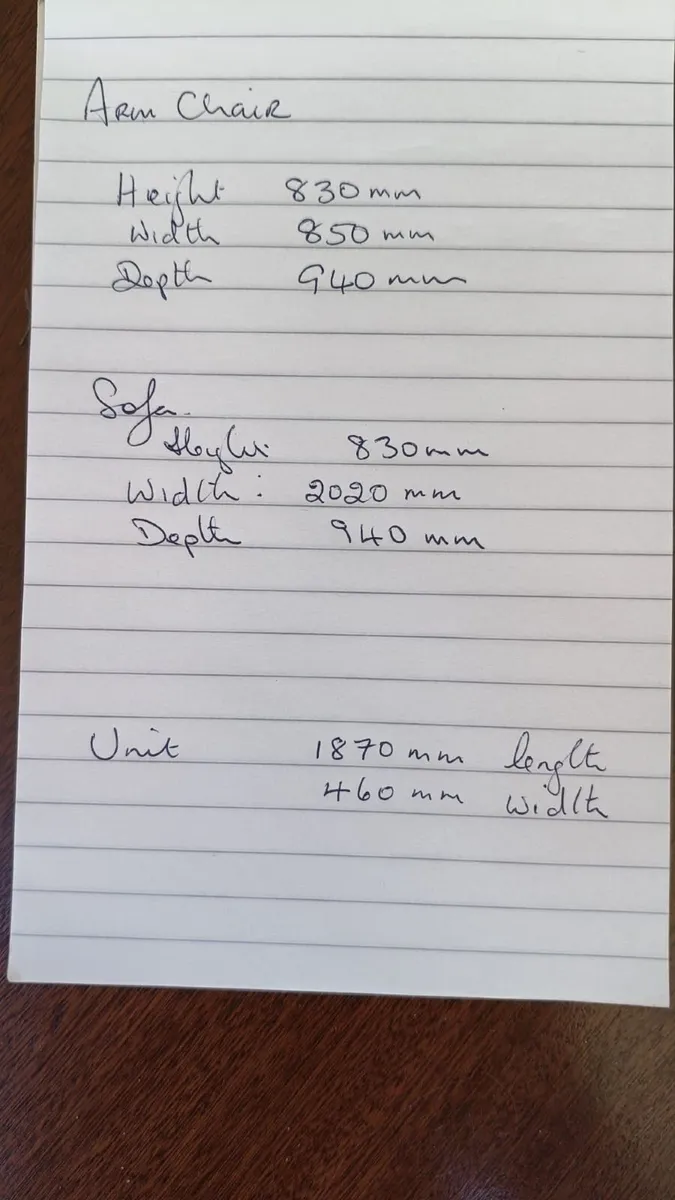 Arm Chair
Height 830 mm
Width 850 mm
Depth 940 mm
Sofa.
Height 830 mm
Width : 2020 mm
Depth 940 mm
Unit 1870 mm length
460 mm width